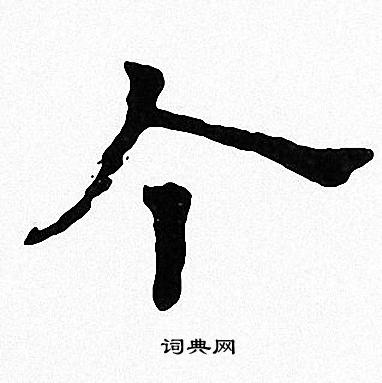 个
词典网